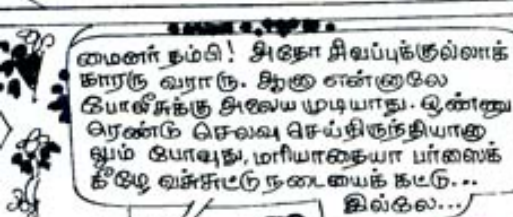 மைனர் தம்பி! அதோ சிவப்புக்குல்லாக்
காரரு வராரு. ஆனா என்னாலே
போலீசுக்கு அலைய முடியாது. ஒண்ணு
ரெண்டு செலவு செய்திருந்தியானா
லும் போவுது, மரியாதையா பர்ஸைக்
கீழே வச்சுட்டு நடையைக் கட்டு...
இல்லே...